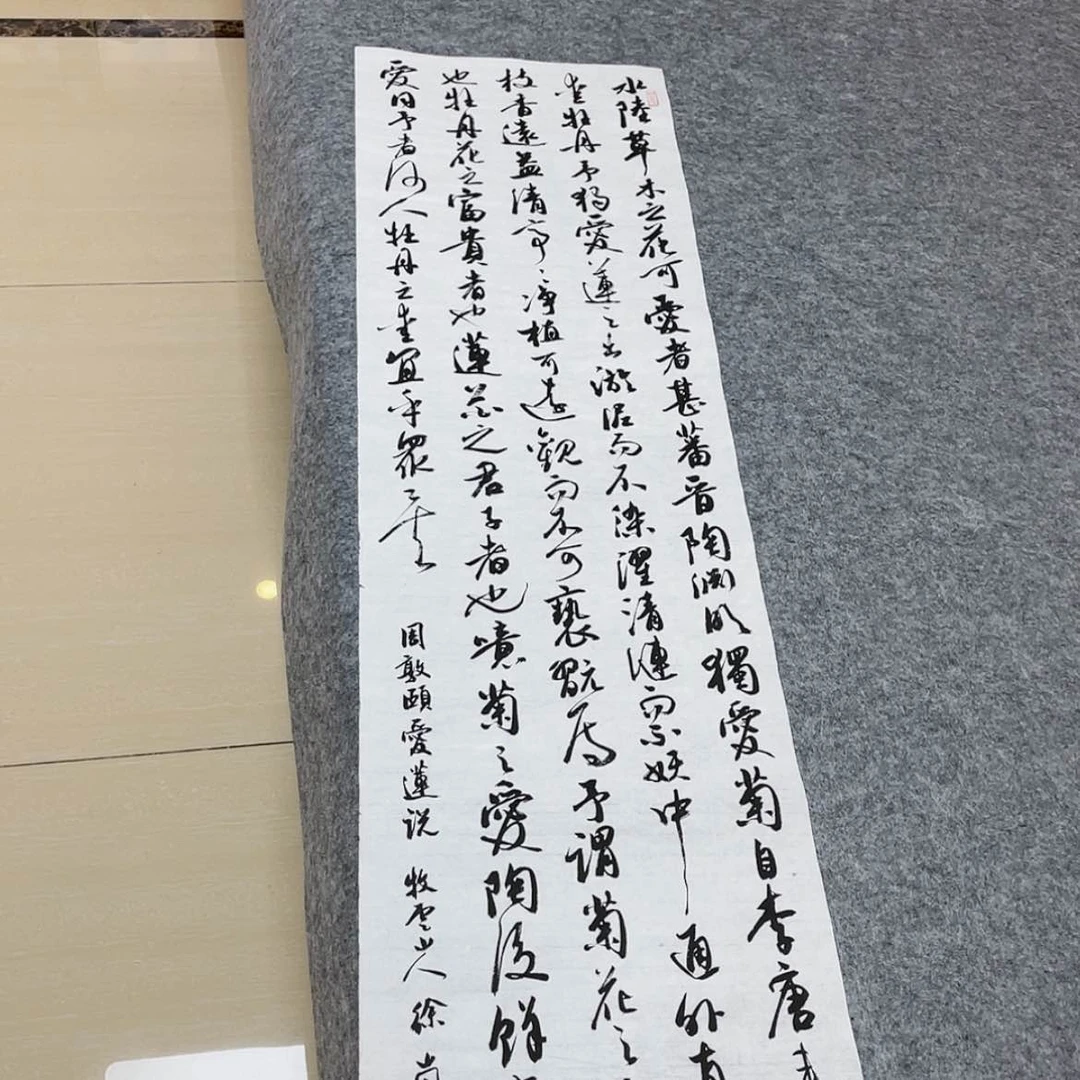 水陸草木之花可愛者甚蕃晋陶渊明獨愛菊自李唐来
爱牡丹予独愛蓮之出淤泥而不染濯清漣而不妖中通外直
枝香遠益清亭亭净植可遠觀而不可褻翫焉予謂菊花之
也牡丹花之富貴者也蓮花之君子者也噫菊之愛陶後鮮
愛同予者何人牡丹之爱宜乎眾矣
周敦頤愛蓮説 牧雲山人 徐尚